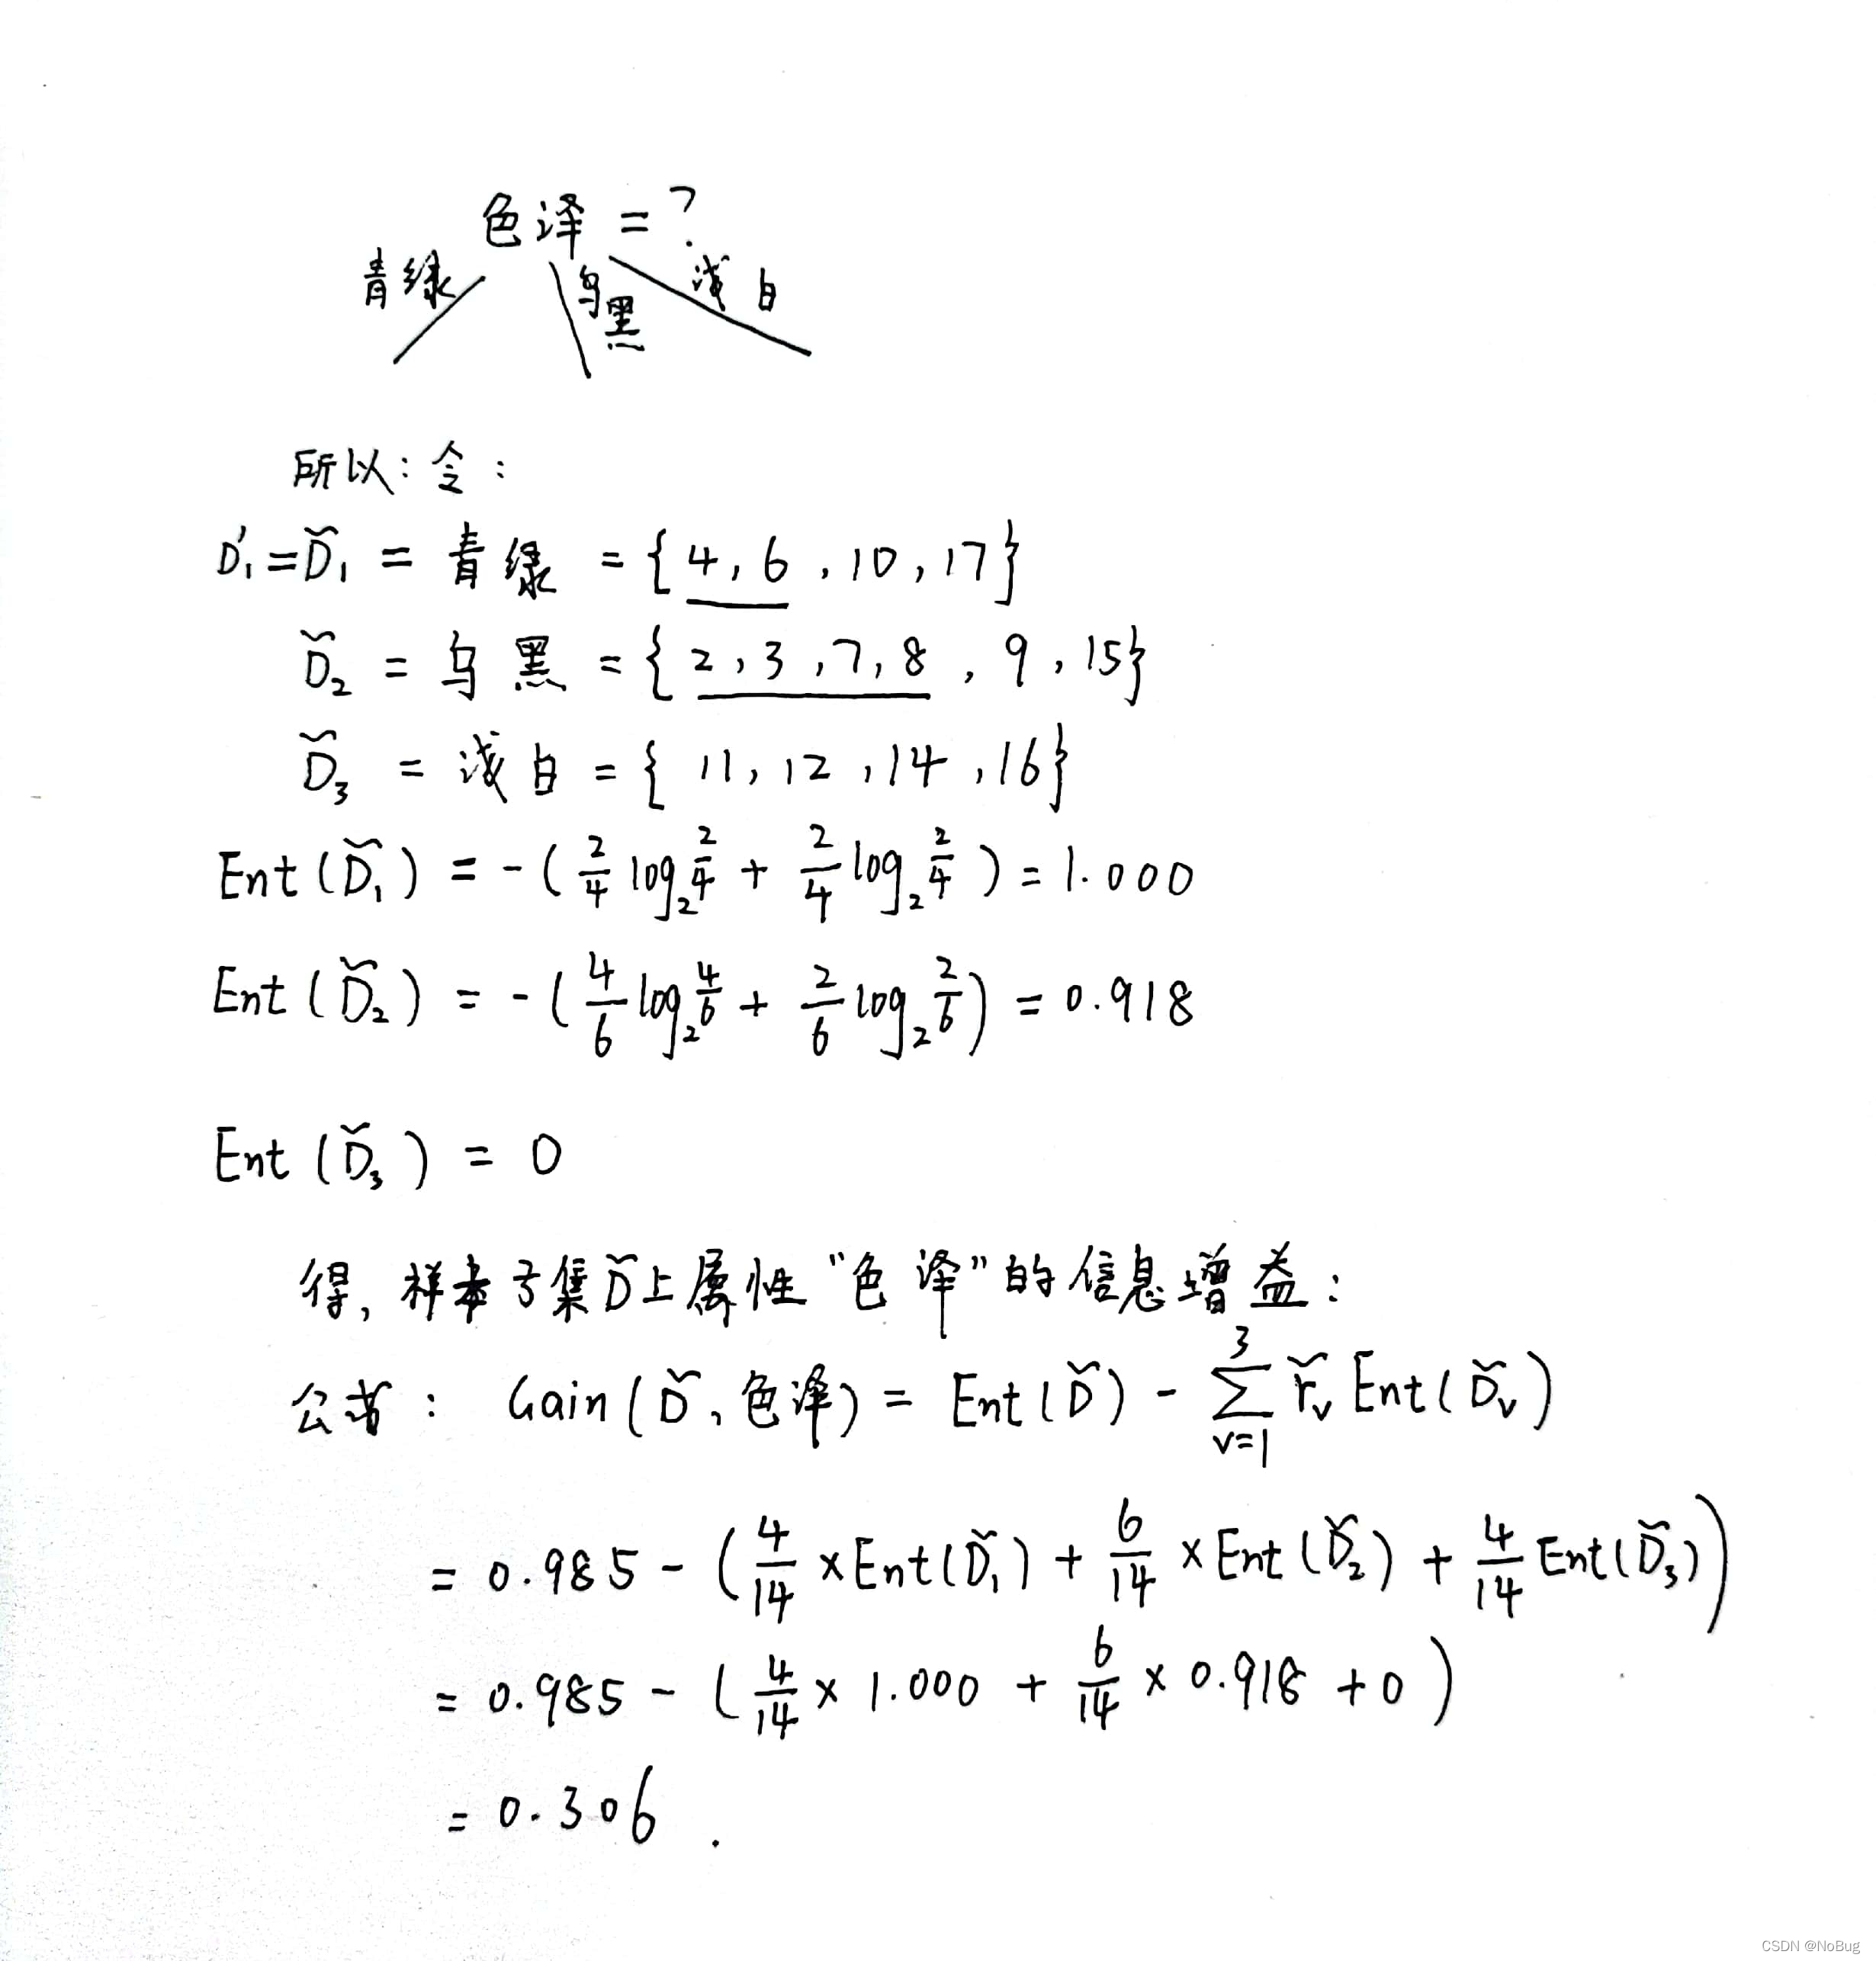 色泽 = ?
青绿 乌黑 浅白
所以: 令:
D'₁ = D̃₁ = 青绿 = {4, 6, 10, 17}
D̃₂ = 乌黑 = {2, 3, 7, 8, 9, 15}
D̃₃ = 浅白 = {11, 12, 14, 16}
Ent(D̃₁) = -(2/4 log₂ 2/4 + 2/4 log₂ 2/4) = 1.000
Ent(D̃₂) = -(4/6 log₂ 4/6 + 2/6 log₂ 2/6) = 0.918
Ent(D̃₃) = 0
得, 样本子集D̃上属性"色泽"的信息增益:
: Gain(D̃, 色泽) = Ent(D̃) - ∑_{v=1}^{3} r̃ᵥ Ent(D̃ᵥ)
= 0.985 - (4/14 × Ent(D̃₁) + 6/14 × Ent(D̃₂) + 4/14 Ent(D̃₃))
= 0.985 - (4/14 × 1.000 + 6/14 × 0.918 + 0)
= 0.306.
CSDN @NoBug